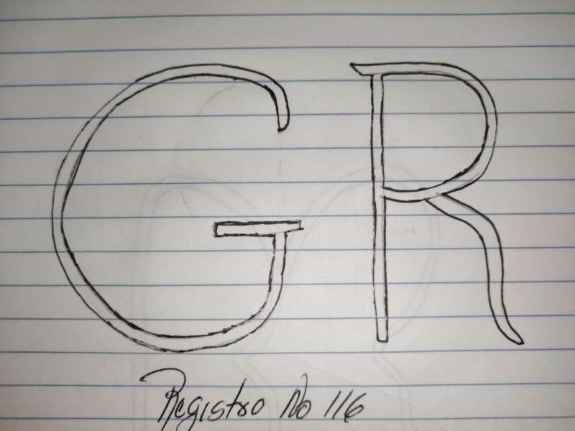 GR
Registro No 116